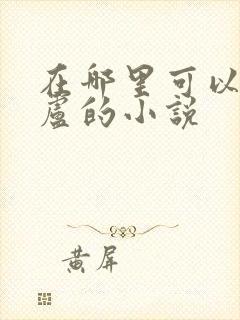 在哪里可以
卢的小说
黄屏